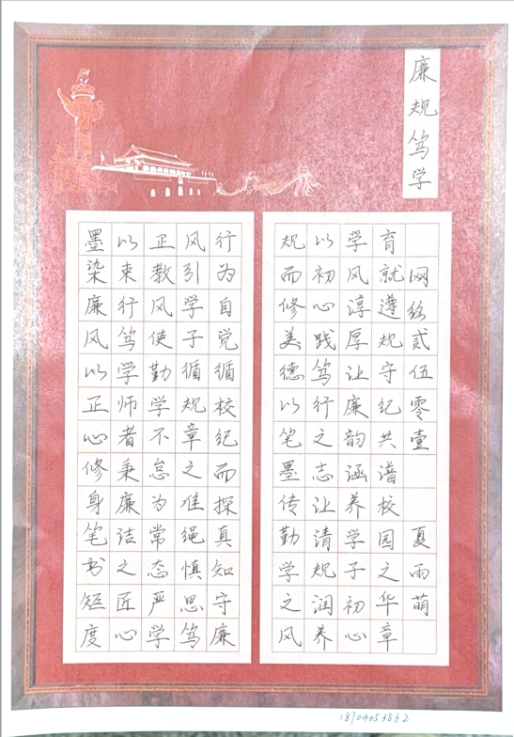 廉规笃学
墨染廉风以正心修身笔书矩度
以束行笃学师者秉廉洁之匠心
正教风使勤学不怠为常态严学
风引学子循规章之准绳慎思笃
行为自觉循校纪而探真知守廉
规而修美德以笔墨传勤学之风
以初心践笃行之志让清规润养
学风淳厚让廉韵涵养学子初心
育就遵规守纪共谱校园之华章
网络贰伍零壹 夏雨萌
18704053862